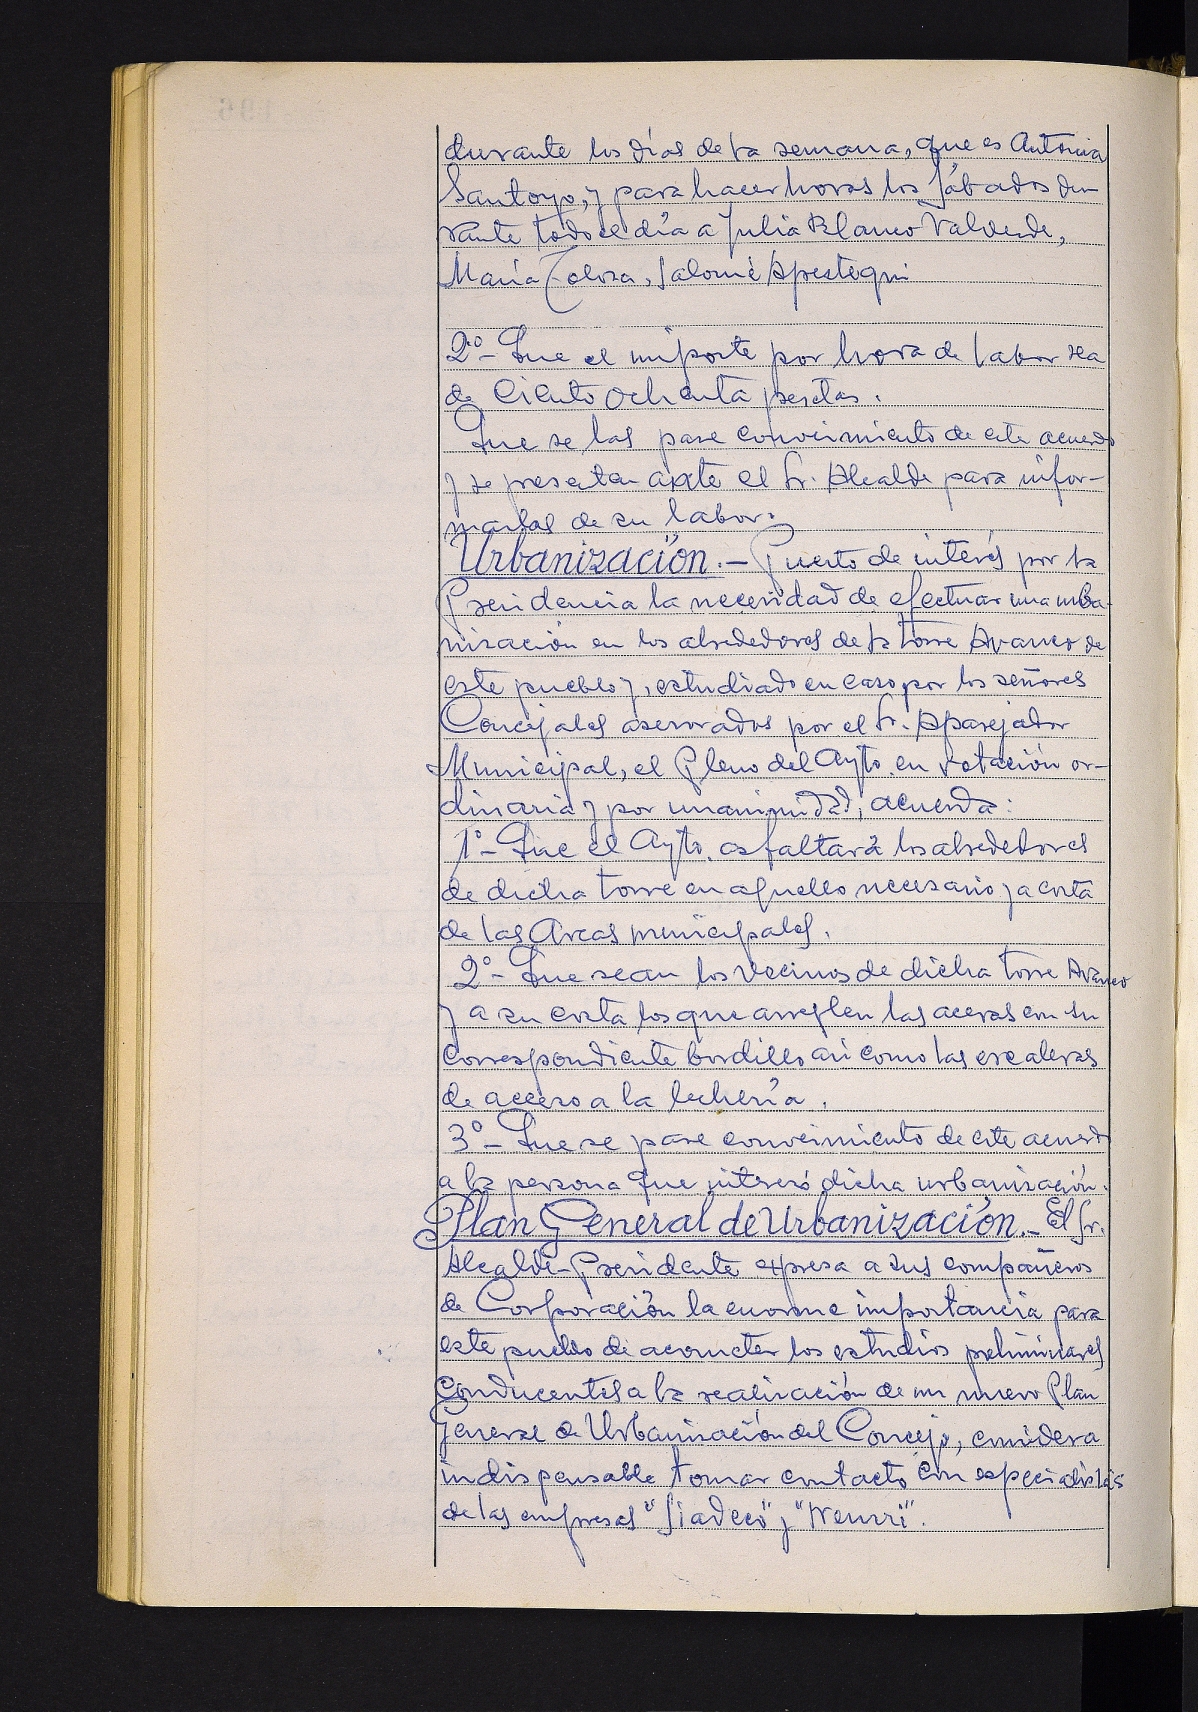 durante los días de la semana, que es Antonia
Santoyo, y para hacer horas los sábados du-
rante todo el día a Julia Blanco Valverde,
María Tolosa, Salomé Apestegui
2º- Que el importe por hora de labor sea
de Ciento ochenta pesetas.
Que se las pase conocimiento de este acuerdo
y se presenten ante el Sr. Alcalde para infor-
marlas de su labor.
Urbanización.- Puesto de interés por la
Presidencia la necesidad de efectuar una urba-
nización en los alrededores de la torre Avanco de
este pueblo y, estudiado en caso por los señores
Concejales asesorados por el Sr. Aparejador
Municipal, el Pleno del Ayto. en votación or-
dinaria y por unanimidad, acuerda:
1º- Que el Ayto. asfaltará los alrededores
de dicha torre en aquello necesario y a costa
de las Arcas municipales.
2º- Que sean los vecinos de dicha torre Avanco
y a su costa los que arreglen las aceras con su
correspondiente bordillo así como las escaleras
de acceso a la lechería.
3º- Que se pase conocimiento de este acuerdo
a la persona que interesó dicha urbanización.
Plan General de Urbanización.- El Sr.
Alcalde-Presidente expresa a sus compañeros
de Corporación la enorme importancia para
este pueblo de acometer los estudios preliminares
conducentes a la realización de un nuevo Plan
General de Urbanización del Concejo, considera
indispensable tomar contacto con especialistas
de las empresas "Siadeco" y